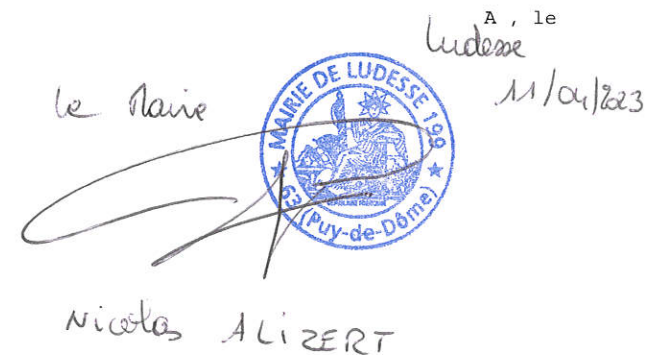 A , le
Ludesse
11/04/2023
Le Maire
MAIRIE DE LUDESSE 199
★ 63 (Puy-de-Dôme) ★
Nicolas ALIZERT